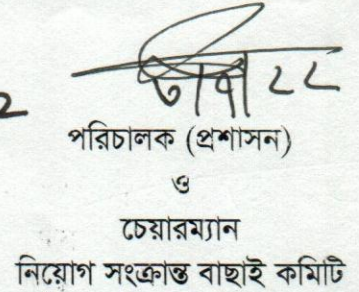 পরিচালক (প্রশাসন)
ও
চেয়ারম্যান
নিয়োগ সংক্রান্ত বাছাই কমিটি